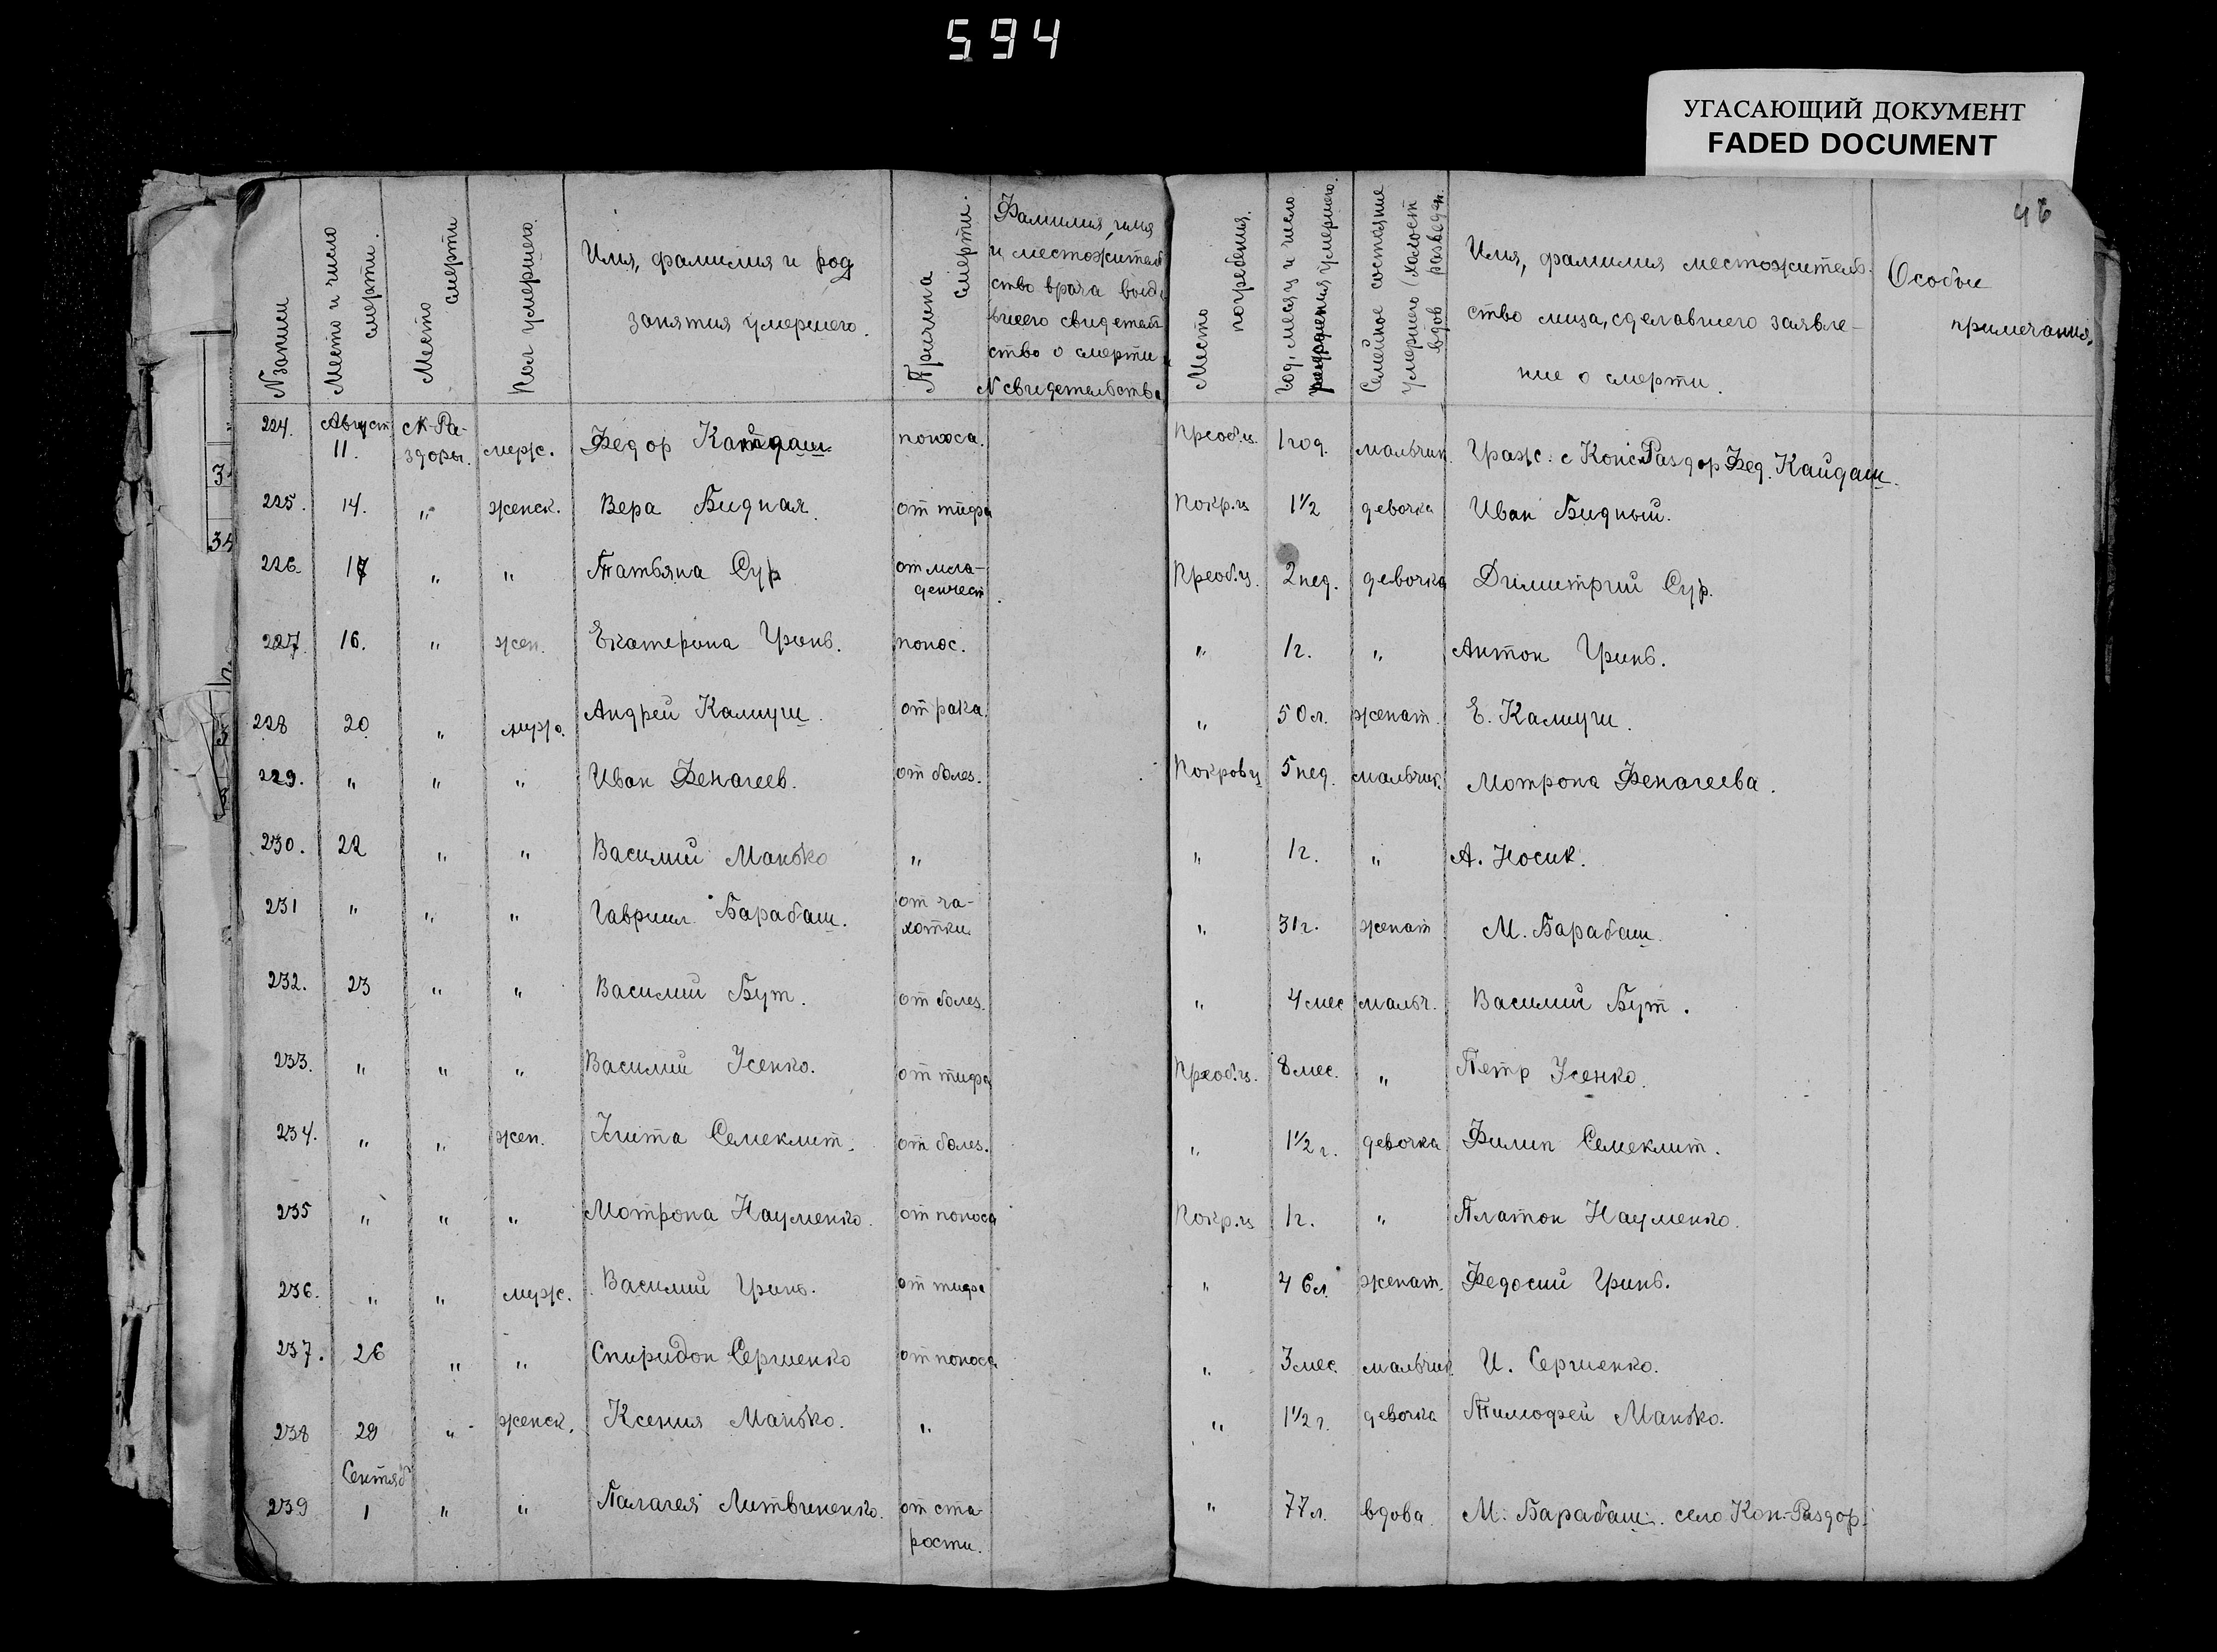 594
УГАСАЮЩИЙ ДОКУМЕНТ
FADED DOCUMENT
46
N записи
Место и число смерти.
Место смерти
Пол умершего.
Имя, фамилия и род
занятия умершего.
Причина смерти.
Фамилия, имя
и местожитель
ство врача выда
вшего свидетель
ство о смерти
N свидетельства
Место погребения.
Год, месяц и число рождения умершего.
Семейное состояние умершего (холост вдов разведен.
Имя, фамилия местожитель-
ство лица, сделавшего заявле-
ние о смерти.
Особые
примечания.
224. Август 11. с К-Ра-здоры. мужс. Федор Кайдаш. поноса. Преоб.ц. 1 год. мальчик. Граж. с Конс. Раздор Фед. Кайдаш.
225. 14. " женск. Вера Бидная. от тифа Покр.ц 1½ девочка Иван Бидный.
226. 17 " " Татьяна Сур от мла-денчест. Преоб.ц. 2 нед. девочка Димитрий Сур.
227. 16. " жен. Екатерина Гринь. понос. " 1 г. " Антон Гринь.
228 20 " мужс. Андрей Калиущ. от рака. " 50 л. женат. Е. Калиущ.
229. " " " Иван Фенагеев. от болез. Покров.ц 5 нед. мальчик. Мотрона Фенагеева.
230. 22 " " Василий Манько " " 1 г. " А. Носик.
231 " " " Гавриил Барабаш. от ча-хотки. " 31 г. женат М. Барабаш.
232. 23 " " Василий Бут. от болез. " 4 мес мальч. Василий Бут.
233. " " " Василий Усенко. от тифа Преоб.ц. 8 мес. " Петр Усенко.
234. " " жен. Семеклит. от болез. " 1½ г. девочка Филип Семеклит.
235 " " " Мотрона Науменко. от поноса Покр.ц 1 г. " Платон Науменко.
236. " " мужс. Василий Гринь. от тифа " 46 л. женат. Федосий Гринь.
237. 26 " " Спиридон Сергиенко от поноса " 3 мес. мальчик И. Сергиенко.
238 29 " женск. Ксения Манько. " " 1½ г. девочка Тимофей Манько.
239 Сентяб 1 " " Палагея Литвиненко. от ста-рости. " 77 л. вдова. М. Барабаш. село Кон.-Раздор.